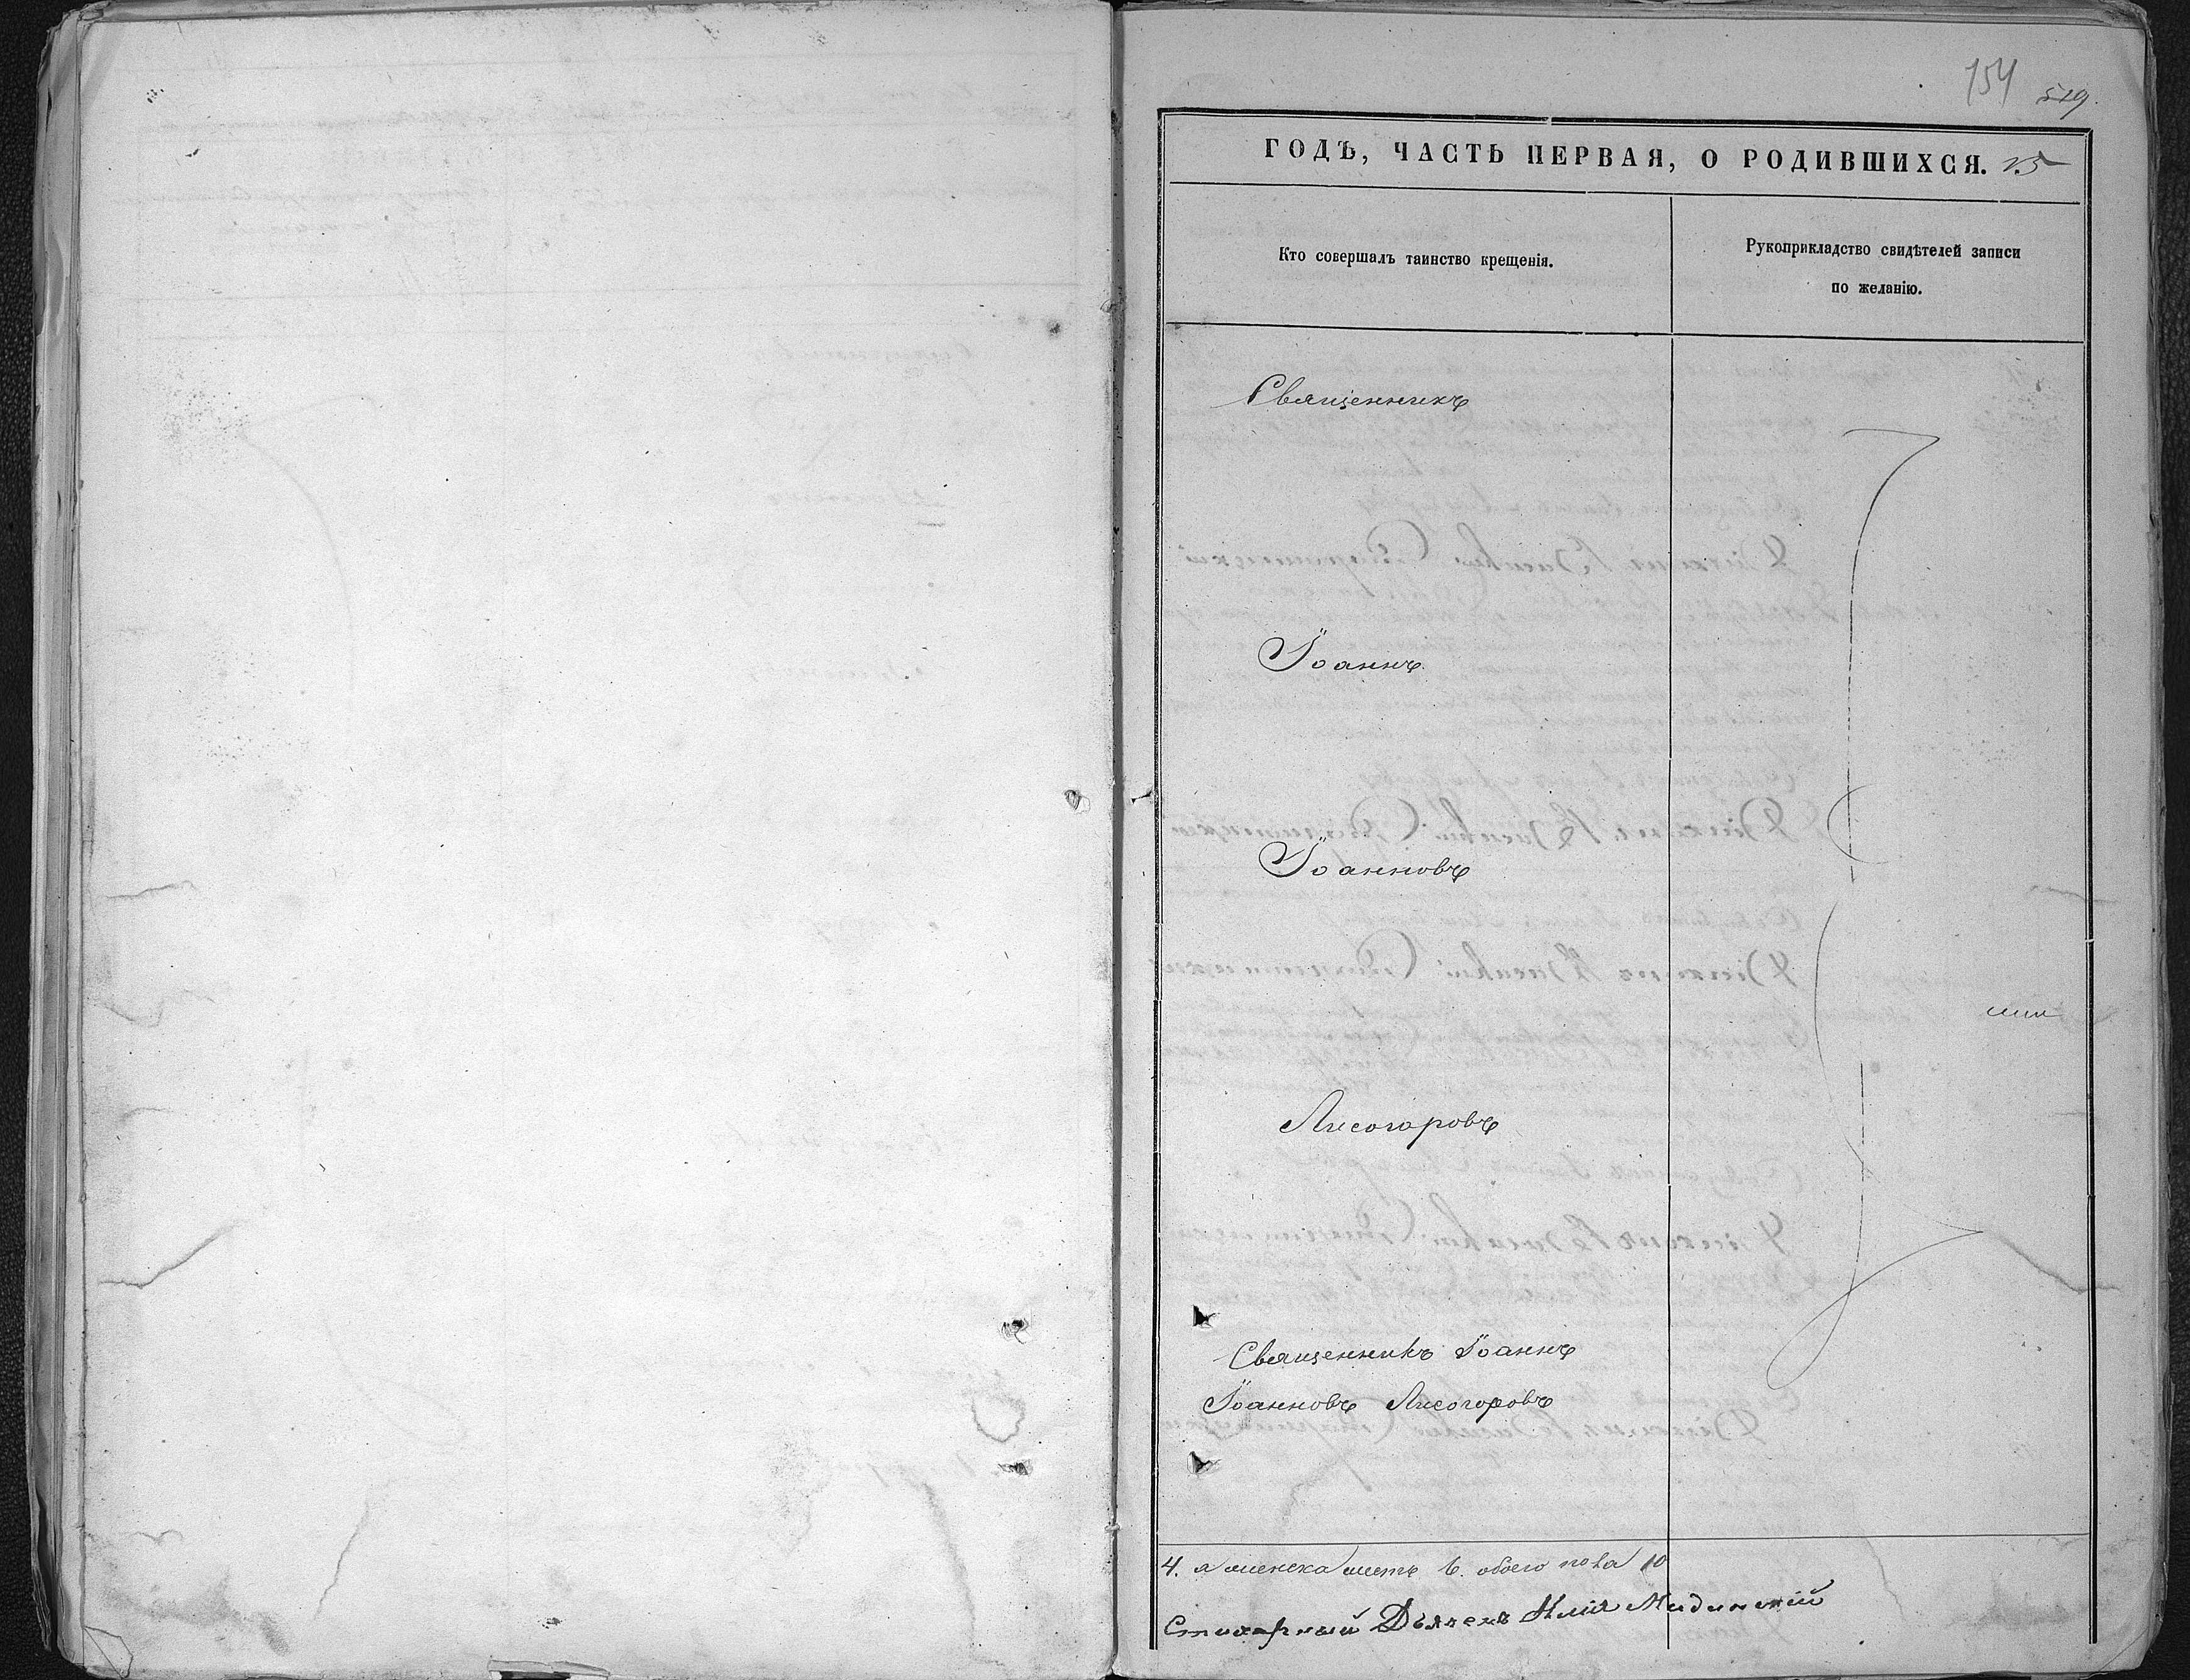 154
519.
ГОДЪ, ЧАСТЬ ПЕРВАЯ, О РОДИВШИХСЯ. 25
Кто совершалъ таинство крещенія.
Рукоприкладство свидѣтелей записи
по желанію.
Священникъ
Іоаннъ
Іоанновъ
Лисогоровъ
Священникъ Іоаннъ
Іоанновъ Лисогоровъ
4. а женска шесть 6. обоего пола 10
Стихарный Дьячекъ Илія